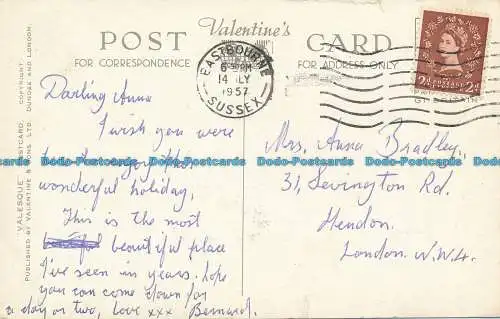 Valentine's
POST CARD
FOR CORRESPONDENCE
FOR ADDRESS ONLY
EASTBOURNE
6-PM
14 JLY
1957
SUSSEX
2D
POSTAGE REVENUE
2D
Darling Anna
I wish you were
here to enjoy this
wonderful holiday,
This is the most
beautiful place
I've seen in years. hope
you can come down for
a day or two, love xxx Bernard.
Mrs. Anna Bradley,
31, Sevington Rd.
Hendon.
London. N.W.4.
"VALESQUE" POSTCARD COPYRIGHT
PUBLISHED BY VALENTINE & SONS LTD. DUNDEE AND LONDON.
Dodo-Postcards Dodo-Postcards Dodo-Postcards Dodo-Postcards Dodo-Postcards